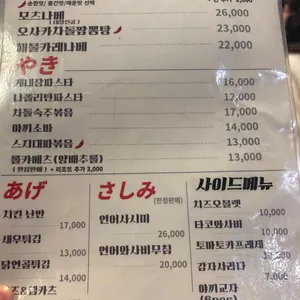 순한맛/ 중간맛/매운맛 선택
모츠나베 26,000
(대창전골)
오사카차돌짬뽕탕 23,000
해물카레나베 22,000
やき
게내장파스타 16,000
나폴리탄파스타 12,000
차돌숙주볶음 17,000
야끼소바 14,000
스지대파볶음 13,000
롤카베츠(양배추롤) 13,000
(한정판매) + 리조또 추가 3,000
あげ
치킨난반 17,000
새우튀김 13,000
닭연골튀김 14,000
さしみ
(한정판매)
연어사시미 26,000
연어와사비무침 20,000
사이드메뉴
치즈오믈렛 10,000
타코와사비 10,000
토마토카프레제
감자사라다 7,000
야끼교자
(6pcs)